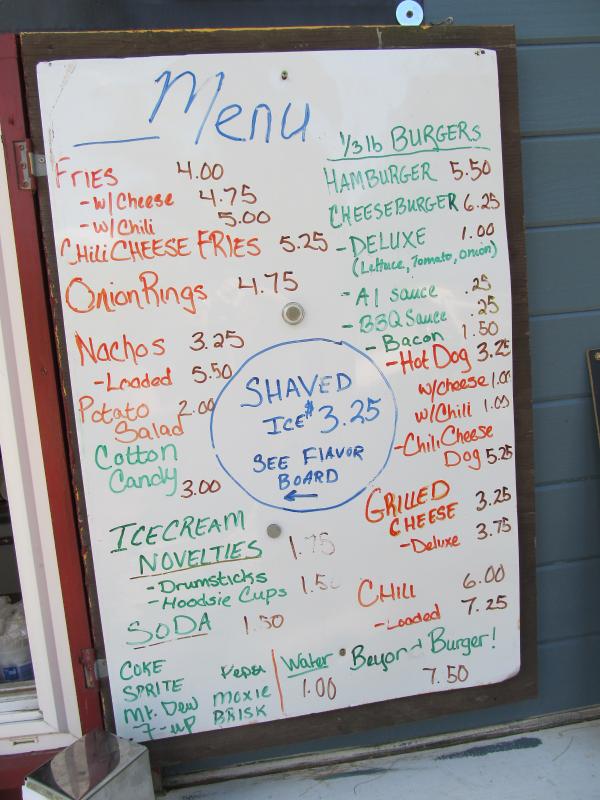 Menu
FRIES 4.00
- w/Cheese 4.75
- w/Chili 5.00
Chili CHEESE FRIES 5.25
Onion Rings 4.75
Nachos 3.25
- Loaded 5.50
Potato Salad 2.00
Cotton
Candy 3.00
ICECREAM
NOVELTIES 1.75
- Drumsticks
- Hoodsie Cups 1.50
SODA 1.50
COKE
SPRITE
Mt. Dew
7-up
Pepsi
Moxie
BRISK
Water
1.00
SHAVED
ICE $3.25
SEE FLAVOR
BOARD
←
1/3 lb BURGERS
HAMBURGER 5.50
CHEESEBURGER 6.25
- DELUXE 1.00
(Lettuce, Tomato, onion)
- A1 sauce .25
- BBQ Sauce .25
- Bacon 1.50
- Hot Dog 3.25
w/cheese 1.00
w/Chili 1.00
- Chili Cheese
Dog 5.25
GRILLED
CHEESE 3.25
- Deluxe 3.75
CHILI 6.00
- Loaded 7.25
Beyond Burger!
7.50